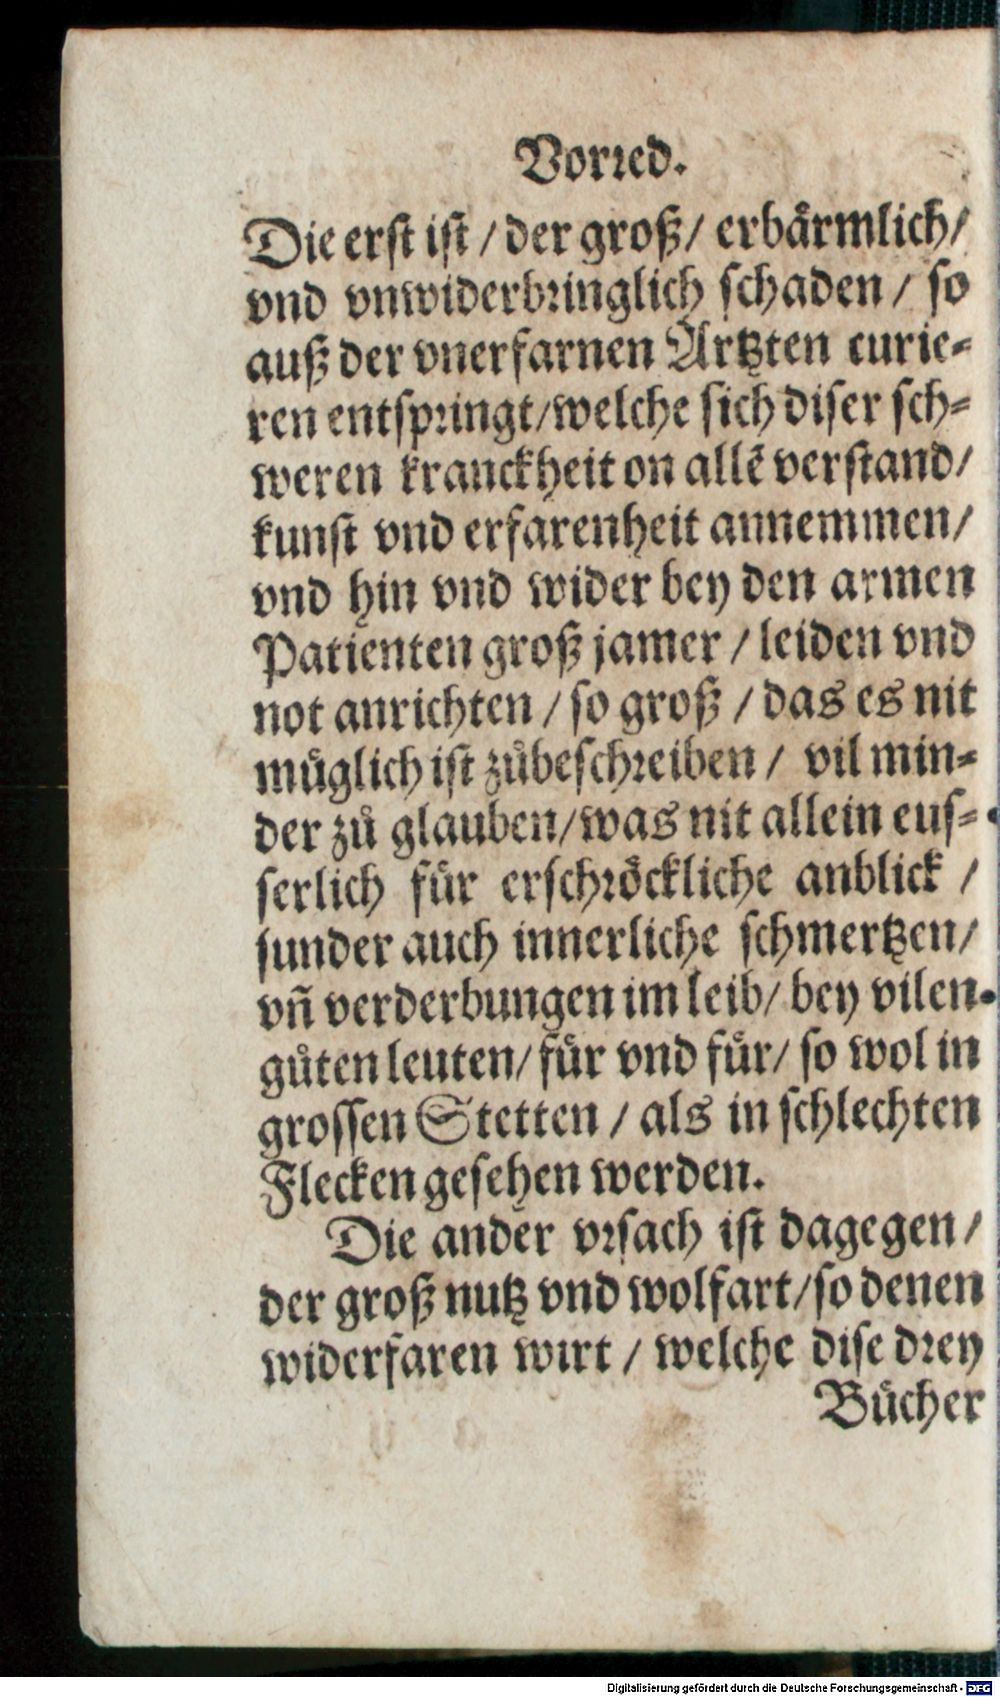 Vorred.
Die erst ist / der groß / erbårmlich /
vnd vnwiderbringlich schaden / so
auß der vnerfarnen Årtzten curie-
ren entspringt / welche sich diser sch-
weren kranckheit on allẽ verstand /
kunst vnd erfarenheit annemmen /
vnd hin vnd wider bey den armen
Patienten groß jamer / leiden vnd
not anrichten / so groß / das es nit
müglich ist zůbeschreiben / vil min-
der zů glauben / was nit allein eus-
serlich für erschröckliche anblick /
sunder auch innerliche schmertzen /
vñ verderbungen im leib / bey vilen
gůten leuten / für vnd für / so wol in
grossen Stetten / als in schlechten
Flecken gesehen werden.
Die ander vrsach ist dagegen /
der groß nutz vnd wolfart / so denen
widerfaren wirt / welche dise drey
Bücher
Digitalisierung gefördert durch die Deutsche Forschungsgemeinschaft - DFG